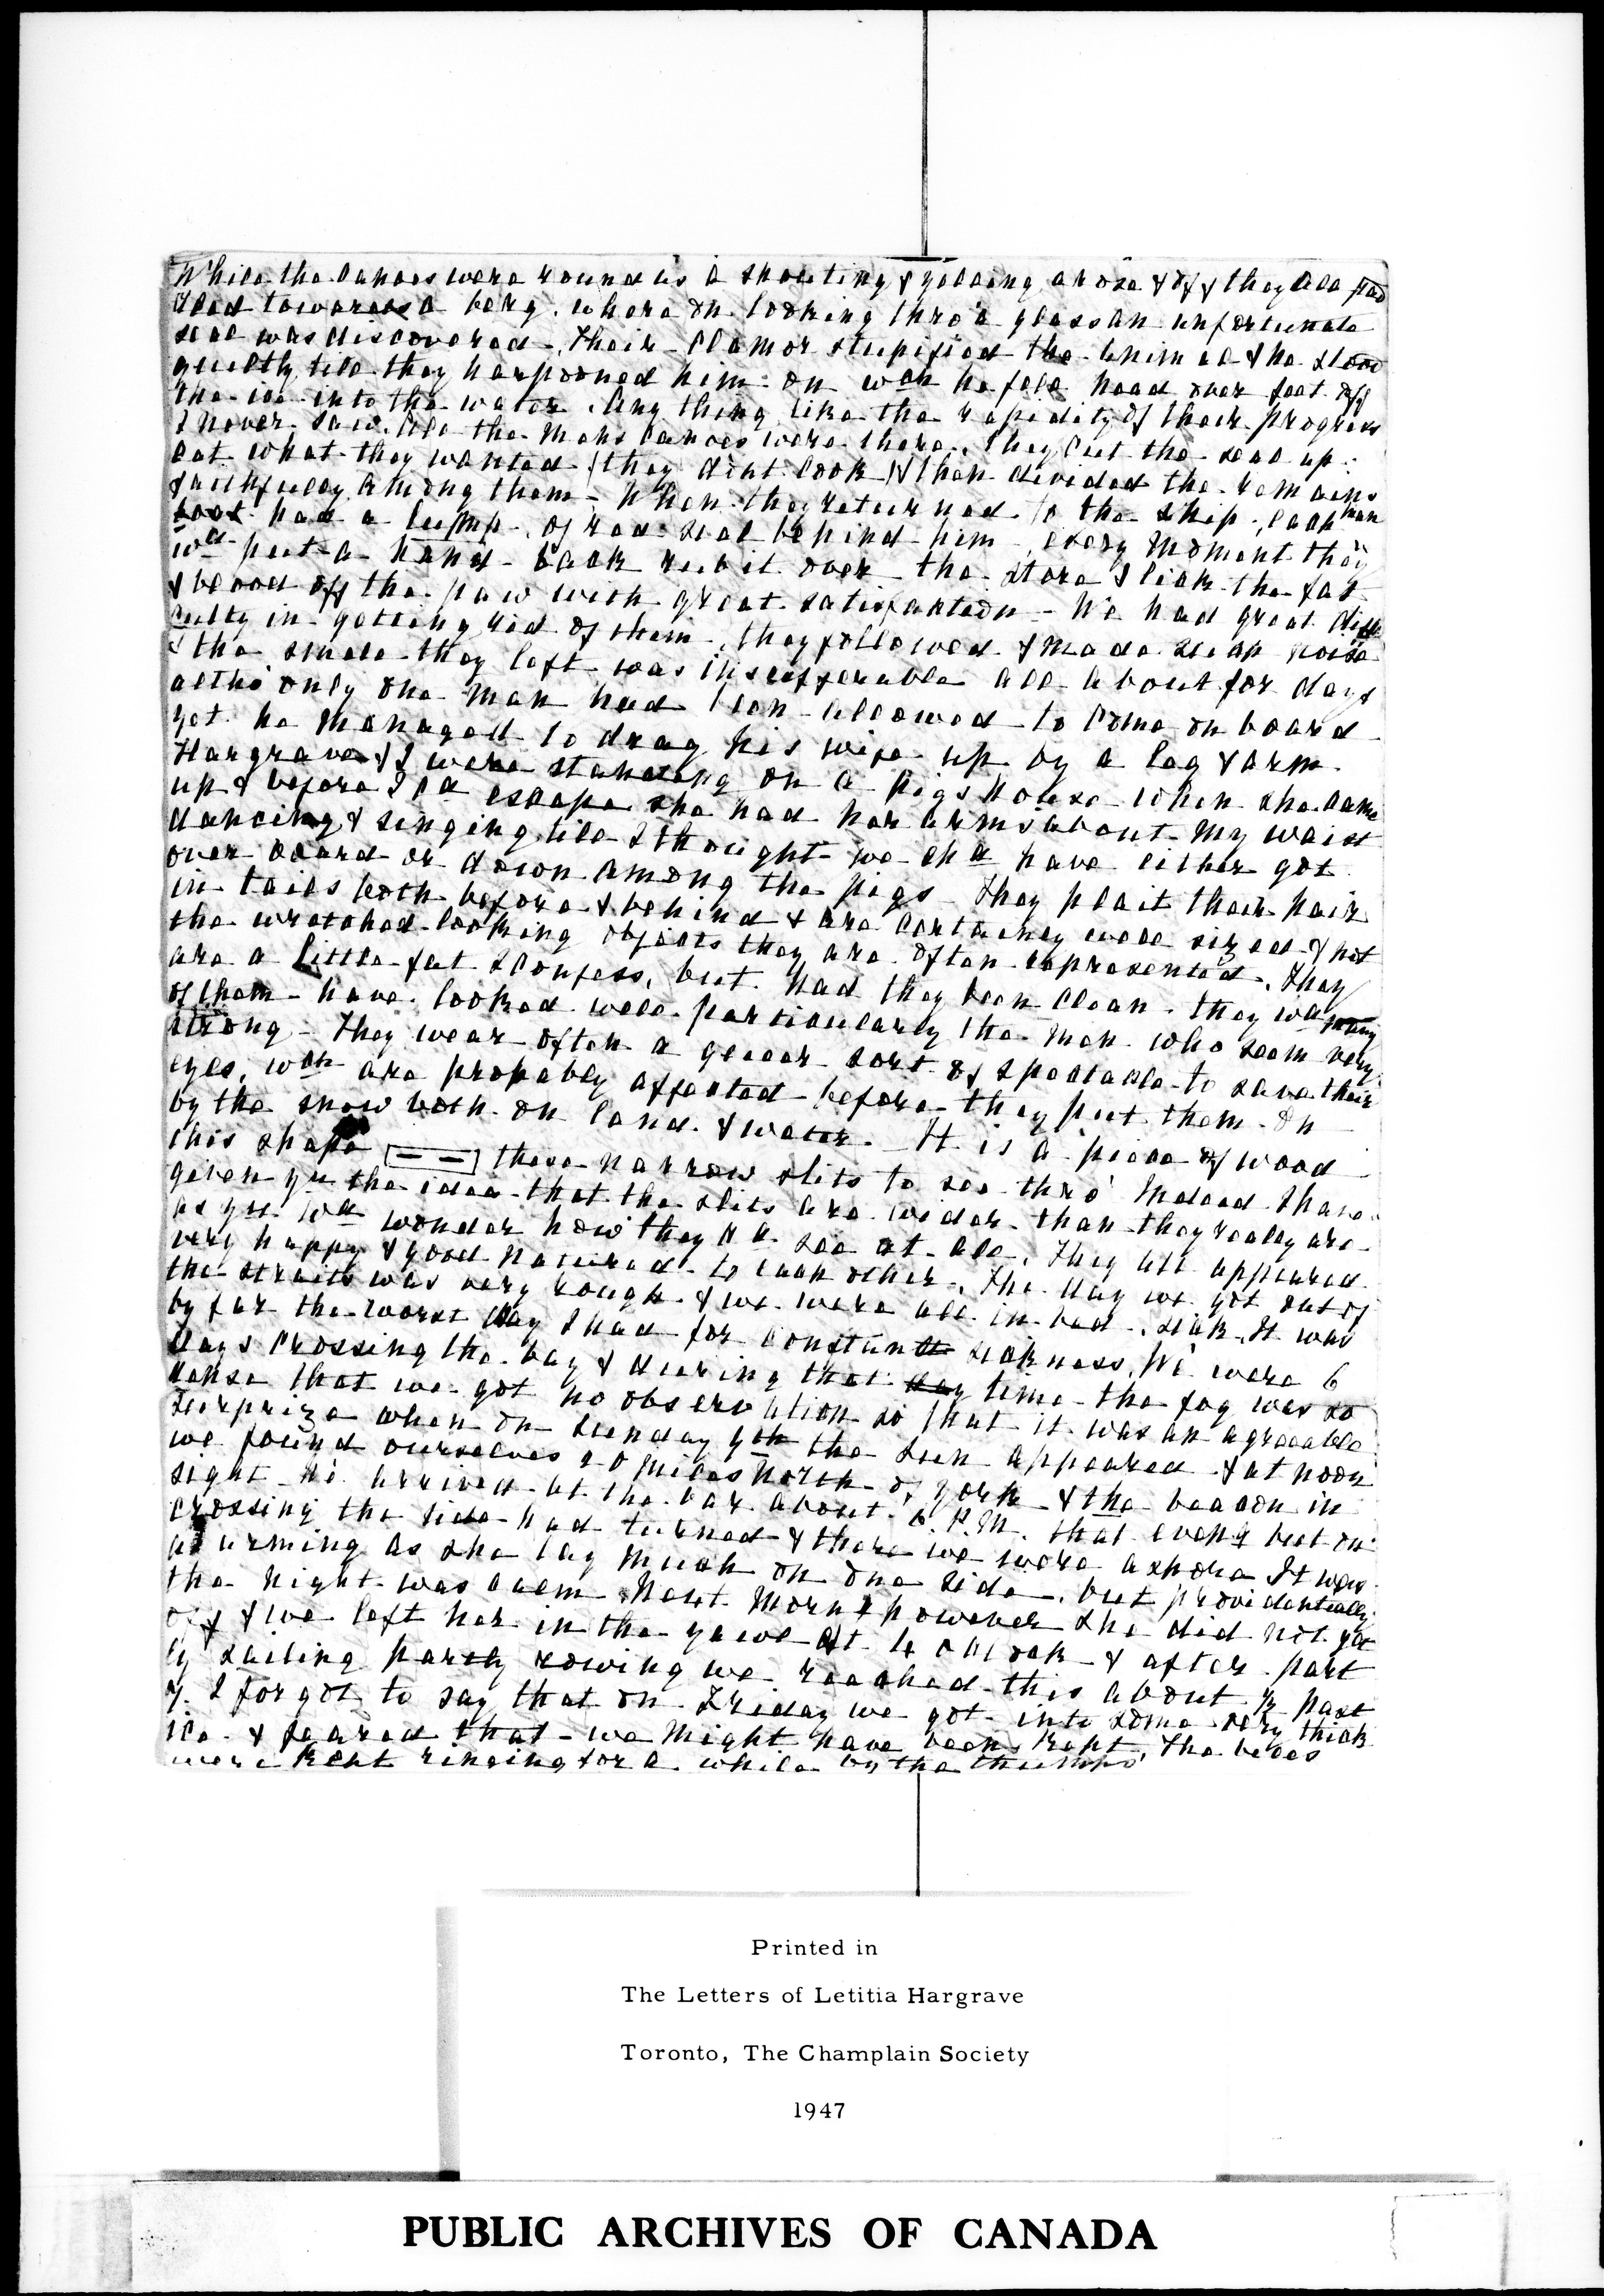 While the canoes were round us a shouting & yelling arose & off they all pad
dled towards a berg. where on looking thro' a glass an unfortunate
seal was discovered. Their clamor stupified the animal & he stood
quietly till they harpooned him. on wch he fell head over feet off
the ice into the water. Any thing like the rapidity of their progress
I never saw. All the mens canoes were there. They cut the seal up.
eat what they wanted (they dint cook) & then divided the remains
faithfully among them. When they returned to the ship, each man
had a lump of raw seal behind him, every moment they
wd put a hand back rub it over the store & lick the fat
& blood off the paw with great satisfaction - We had great diffi
culty in getting rid of them. they followed & made such noise
& the smell they left was insufferable all about for days
altho' only one man had been allowed to come on board
yet he managed to drag his wife up by a leg & arm.
Hargrave & I were standing on a pigs house when she came
up & before I cd escape she had her arms about my waist
dancing & singing till I thought we shd have either got
over board or down among the pigs. They plait their hair
in tails both before & behind & are certainly well sized & not
the wretched looking objects they are often represented. They
are a little fat I confess, but had they been clean. they wd many
of them - have looked well particularly the men who seem very
strong - They wear often a queer sort of spectacle to save their
eyes, wch are probably affected before they put them on
by the snow both on land & water. It is a piece of wood
this shape these narrow slits to see thro' Indeed I have
given yu the idea that the slits are wider than they really are
as yu wd wonder how they cd see at all. They all appeared
very happy & good natured to each other. The day we got out of
the straits was very rough & we were all in bed sick. It was
by far the worst day I had for constant sickness. We were 6
days crossing the bay & during that day time the fog was so
dense that we got no observation so that it was an agreeable
surprize when on Sunday 9th the sun appeared & at noon
we found ourselves 20 miles north of York & the beacon in
sight. We arrived at the bar about 6 P.M. that eveng but on
crossing the tide had turned & there we were ashore It was
alarming as she lay much on one side, but providentially
the night was calm. Next morng however she did not get
off & we left her in the yawl at 4 oclock & after part
ly sailing partly rowing we reached this about ½ past
7. I forgot to say that on Friday we got into some very thick
ice & feared that we might have been kept. The bells
were kept ringing for a while by the thumps
Printed in
The Letters of Letitia Hargrave
Toronto, The Champlain Society
1947
PUBLIC ARCHIVES OF CANADA